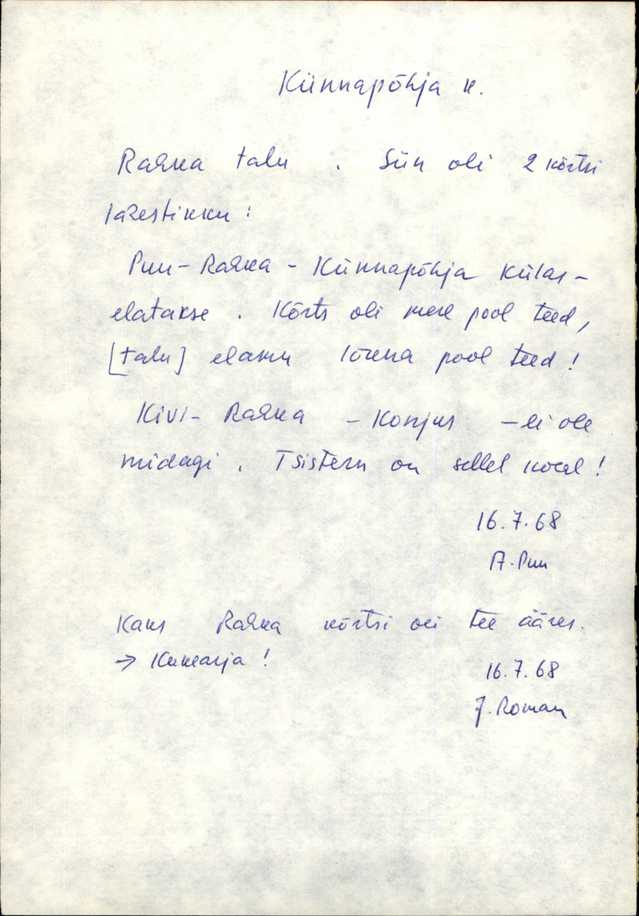 Künnapõhja k.
Rausa talu. Siin oli 2 kõrtsi
lähestikku:
Puu-Rausa - Künnapõhja külas -
elatakse. Kõrts oli mere pool teed,
[talu] elamu lõuna pool teed!
Kivi-Rausa - Konjus - ei ole
midagi. Tsistern on sellel kohal!
16.7.68
A. Puu
Kaks Rausa kõrtsi oli tee ääres.
→ Kukearja!
16.7.68
J. Roman